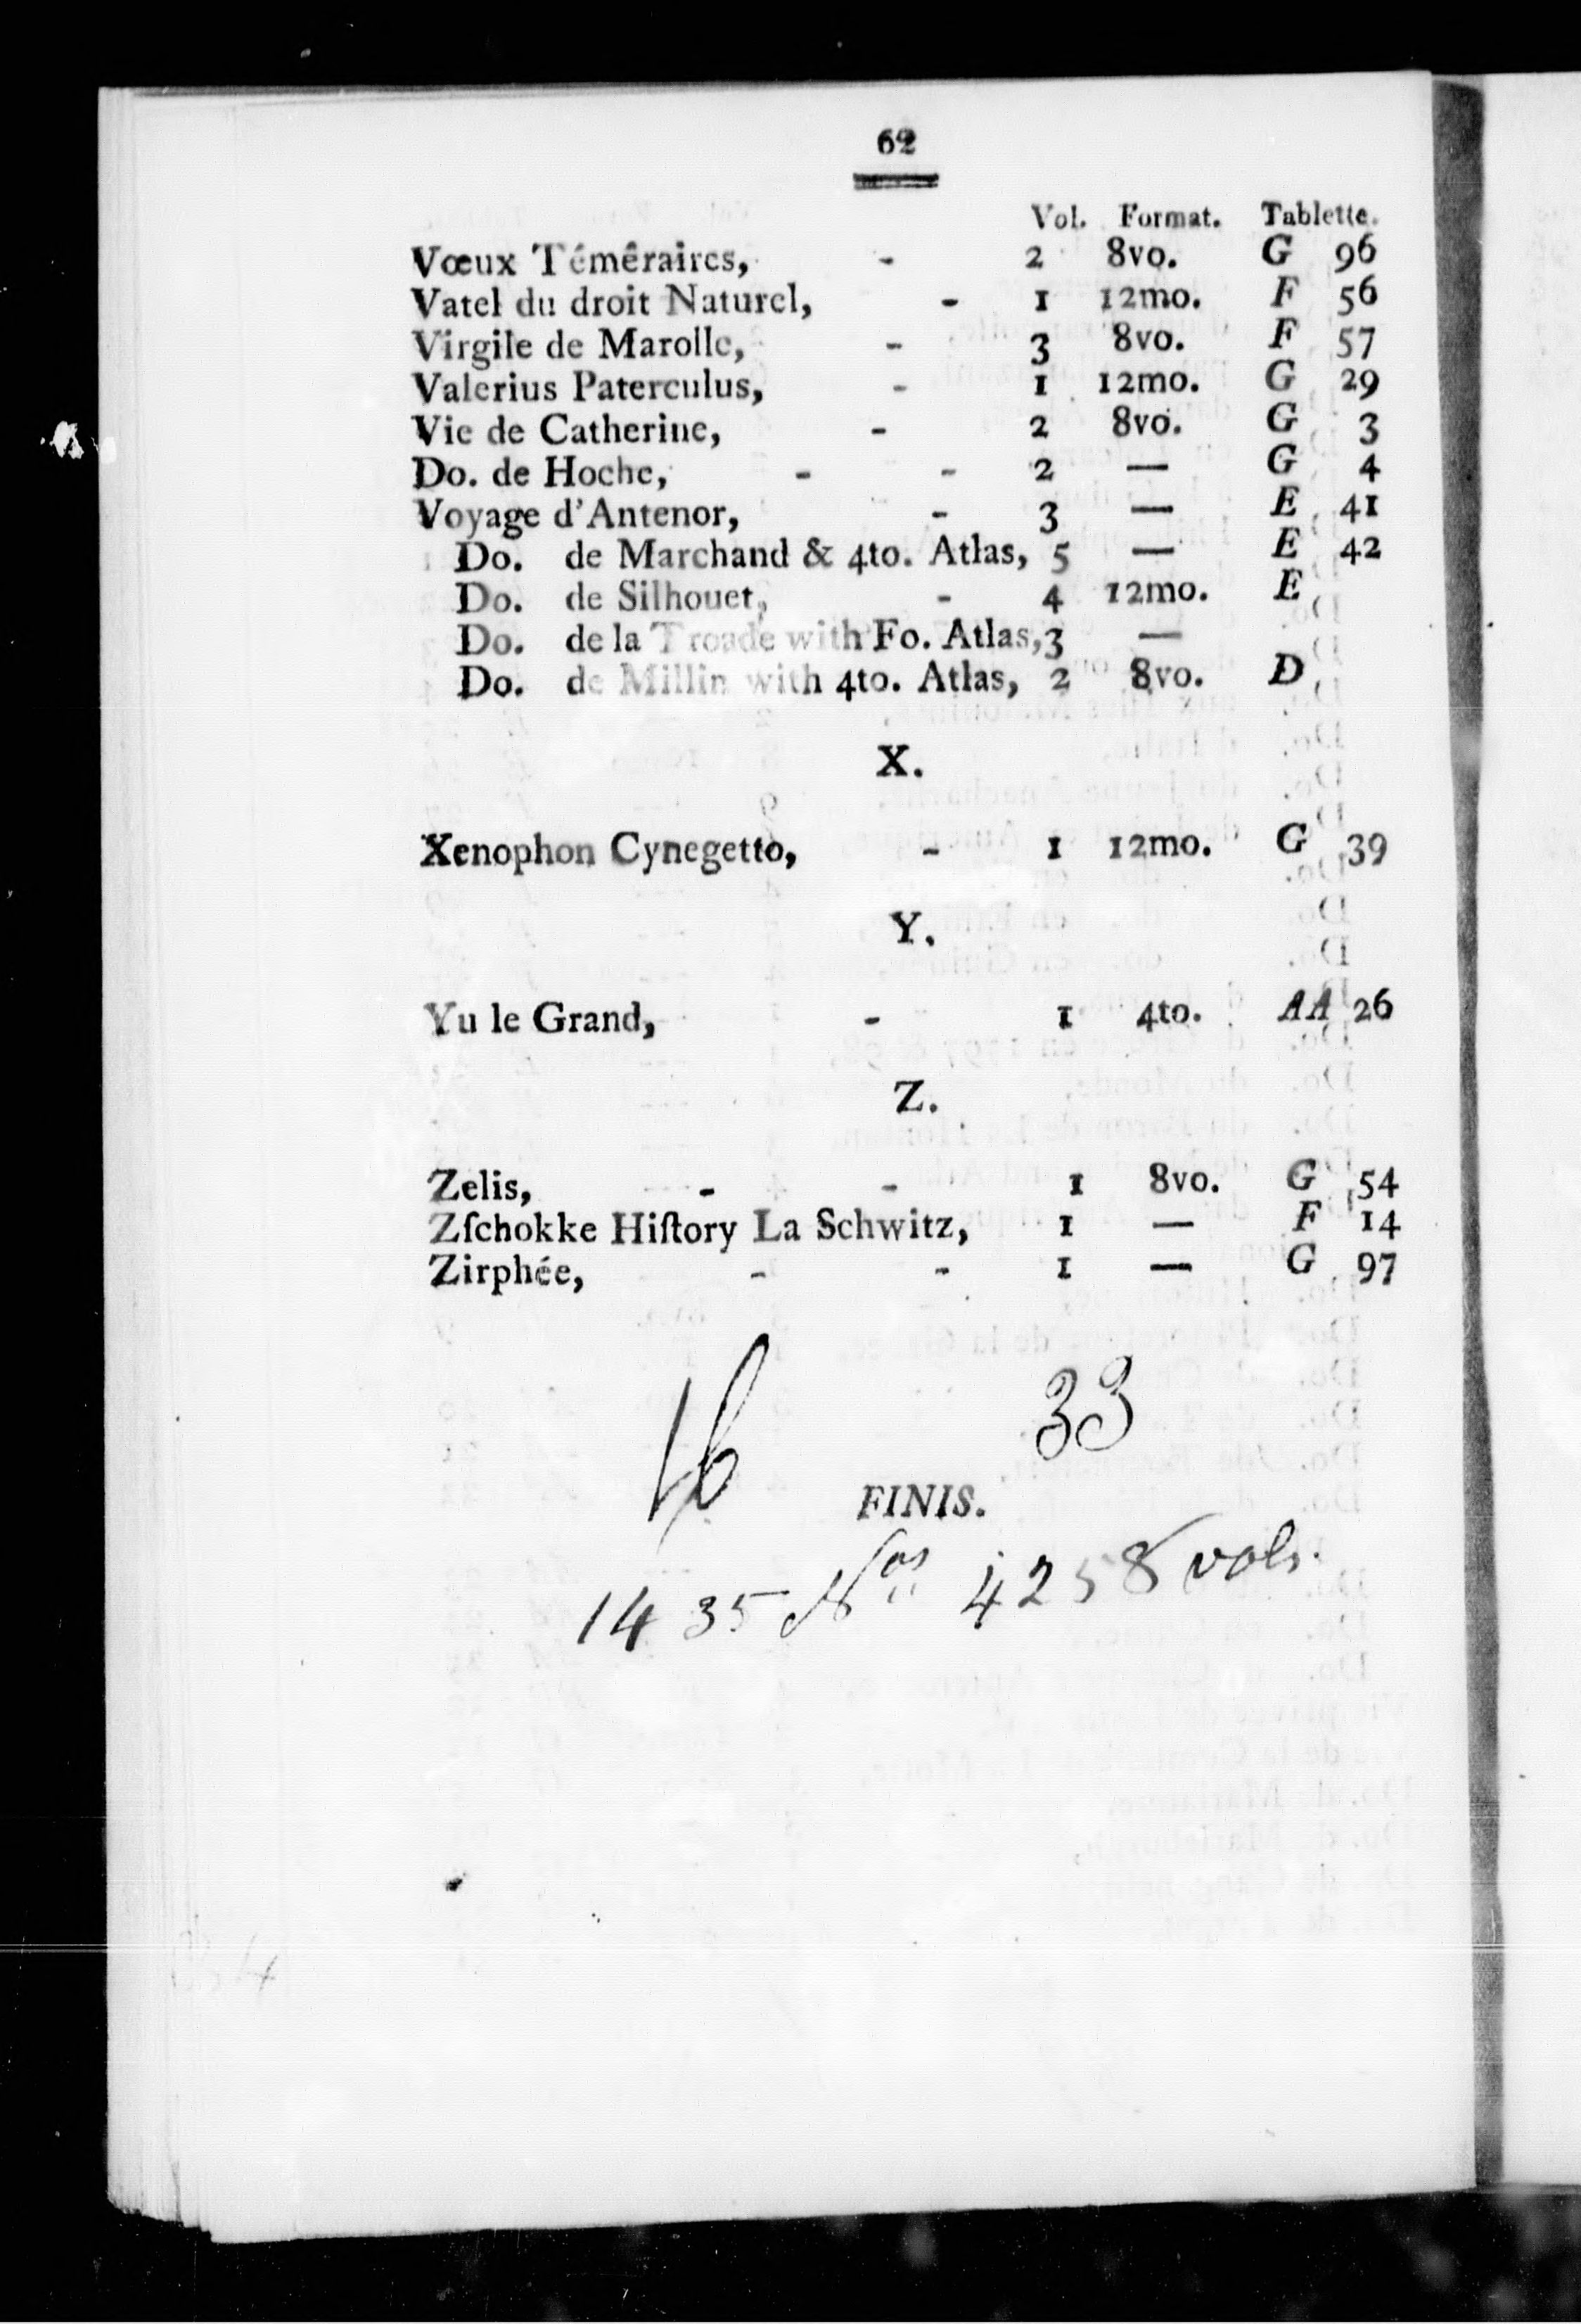 62
Vol. Format. Tablette.
Vœux Témêraires, - 2 8vo. G 96
Vatel du droit Naturel, - 1 12mo. F 56
Virgile de Marolle, - 3 8vo. F 57
Valerius Paterculus, - 1 12mo. G 29
Vie de Catherine, - 2 8vo. G 3
Do. de Hoche, - - 2 — G 4
Voyage d'Antenor, - 3 — E 41
Do. de Marchand & 4to. Atlas, 5 — E 42
Do. de Silhouet, - 4 12mo. E
Do. de la Troade with Fo. Atlas, 3 —
Do. de Millin with 4to. Atlas, 2 8vo. D
X.
Xenophon Cynegetto, - 1 12mo. G 39
Y.
Yu le Grand, - 1 4to. AA 26
Z.
Zelis, - - 1 8vo. G 54
Zſchokke Hiſtory La Schwitz, 1 — F 14
Zirphée, - - 1 — G 97
16 33
FINIS.
1435 Nos 4258 vols.